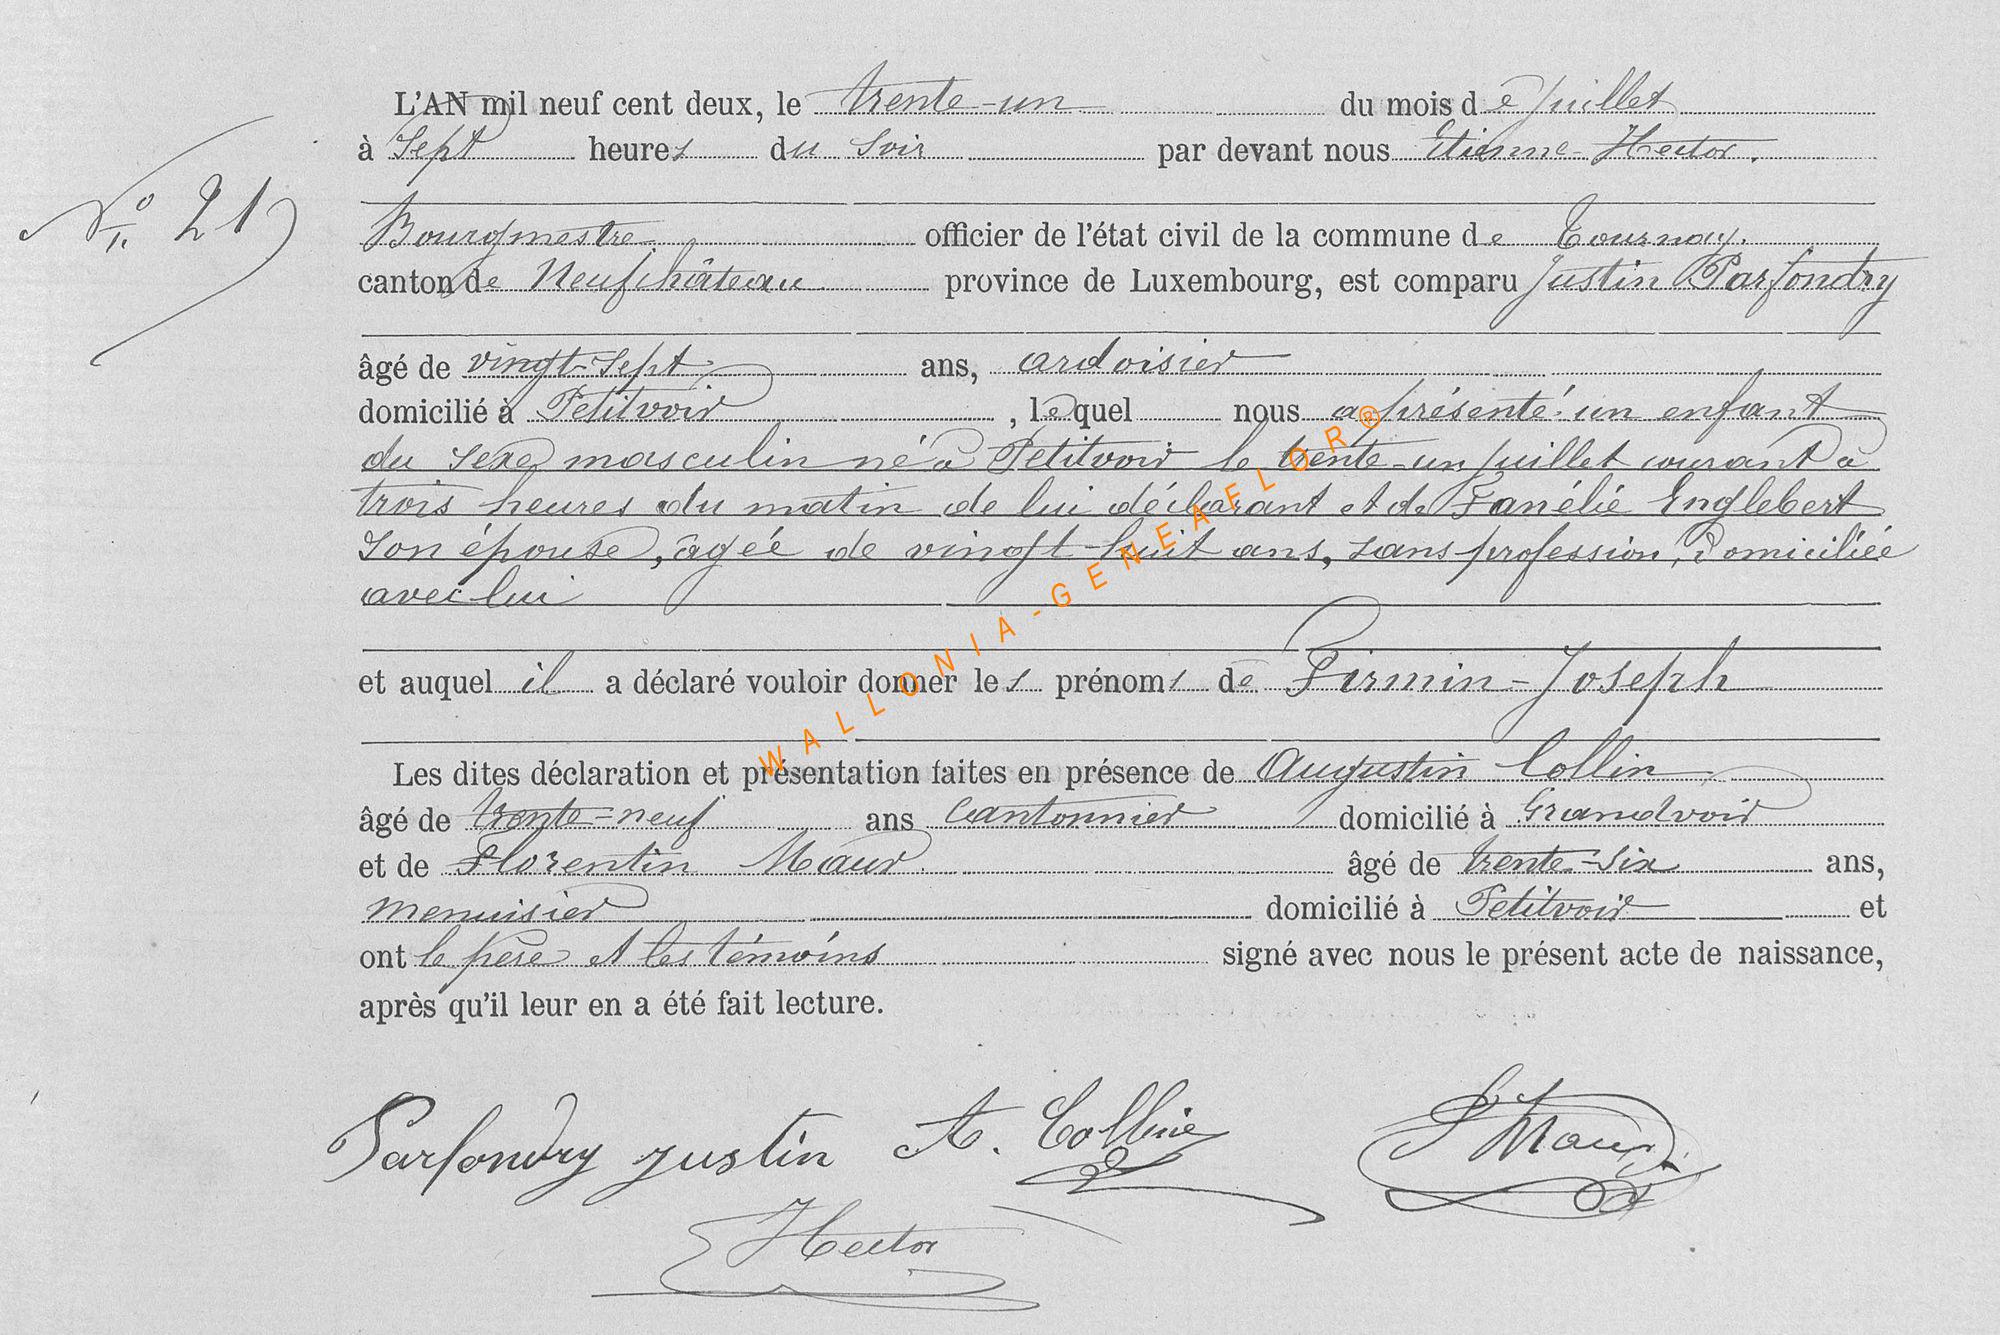 L'AN mil neuf cent deux, le trente-un du mois de juillet
à Sept heures du soir par devant nous Etienne-Hector.
N° 21
Bourgmestre officier de l'état civil de la commune de Tournay.
canton de Neufchâteau province de Luxembourg, est comparu Justin Parfondry
âgé de vingt-sept ans, ardoisier
domicilié à Petitvoir, lequel nous a présenté un enfant
du sexe masculin né à Petitvoir le trente-un juillet courant à
trois heures du matin de lui déclarant et de Fanélie Englebert
son épouse, âgée de vingt-huit ans, sans profession, domiciliée
avec lui
et auquel il a déclaré vouloir donner les prénoms de Firmin-Joseph
Les dites déclaration et présentation faites en présence de Augustin Collin
âgé de trente-neuf ans Cantonnier domicilié à Grandvoir
et de Florentin Maur âgé de trente-six ans,
menuisier domicilié à Petitvoir et
ont le père et les témoins signé avec nous le présent acte de naissance,
après qu'il leur en a été fait lecture.
Parfondry justin A. Collin F Maur
Hector
WALLONIA-GENEAFLOR®